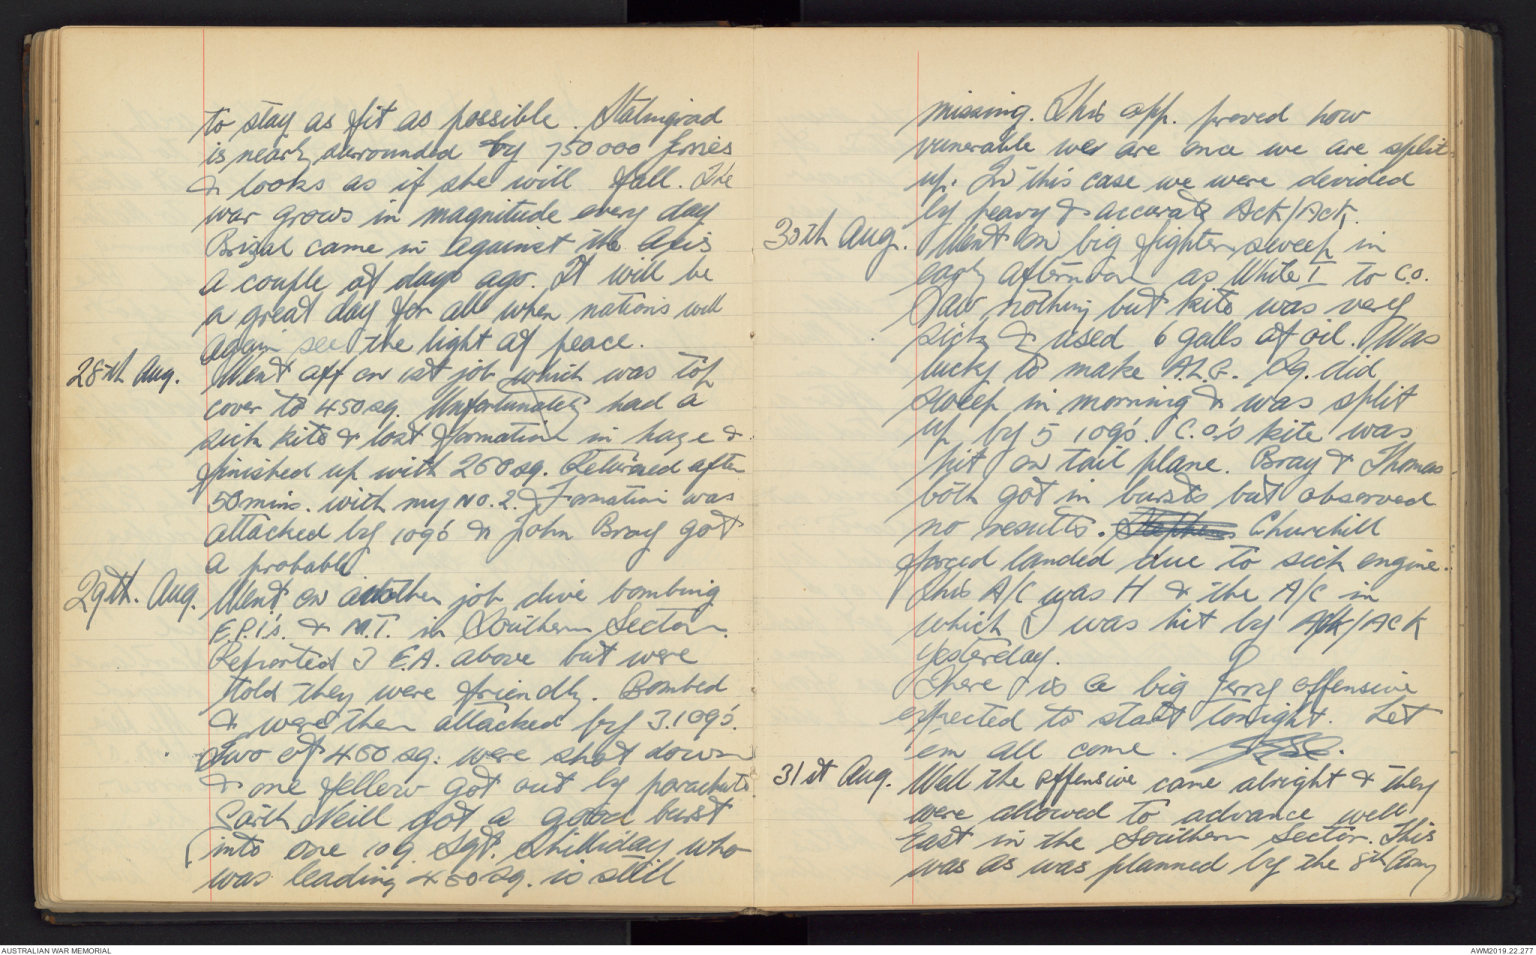 to stay as fit as possible. Stalingrad
is nearly surrounded by 750000 forces
& looks as if she will fall. The
war grows in magnitude every day
Brizal came in against the Axis
a couple of days ago. It will be
a great day for all when nations will
again see the light of peace.
28th Aug. Went off on 1st job which was top
cover to 450 sq. Unfortunately had a
sick kite & lost formation in haze &
finished up with 260 sq. Returned after
50 mins. with my No. 2. Formation was
attacked by 109's & John Bray got
a probable
29th. Aug. Went on another job dive bombing
E.P.I's. & M.T. in Southern Sector.
Reported 3 E.A. above but were
told they were friendly. Bombed
& were then attacked by 3.109's.
Two of 450 sq. were shot down
& one fellow got out by parachute.
Garth Neill got a good burst
into one 109. Sgt. Shilliday who
was leading 450 sq. is still
missing. This opp. proved how
vunerable we are once we are split
up. In this case we were devided
by heavy & accurate Ack/Ack.
30th Aug. Went on big fighter sweep in
early afternoon as White I to C.O.
Saw nothing but kite was very
sick & used 6 galls of oil. Was
lucky to make A.L.G. Sq. did
sweep in morning & was split
up by 5 109's. C.O.'s kite was
hit on tail plane. Bray & Thomas
both got in bursts but observed
no results. Churchill
forced landed due to sick engine.
This A/C was H & the A/C in
which I was hit by Ack/Ack
yesterday.
There is a big Jerry offensive
expected to start tonight. Let
em all come.
31st Aug. Well the offensive came alright & they
were allowed to advance well
East in the Southern Sector. This
was as was planned by the 8th Army
AUSTRALIAN WAR MEMORIAL
AWM2019.22.277